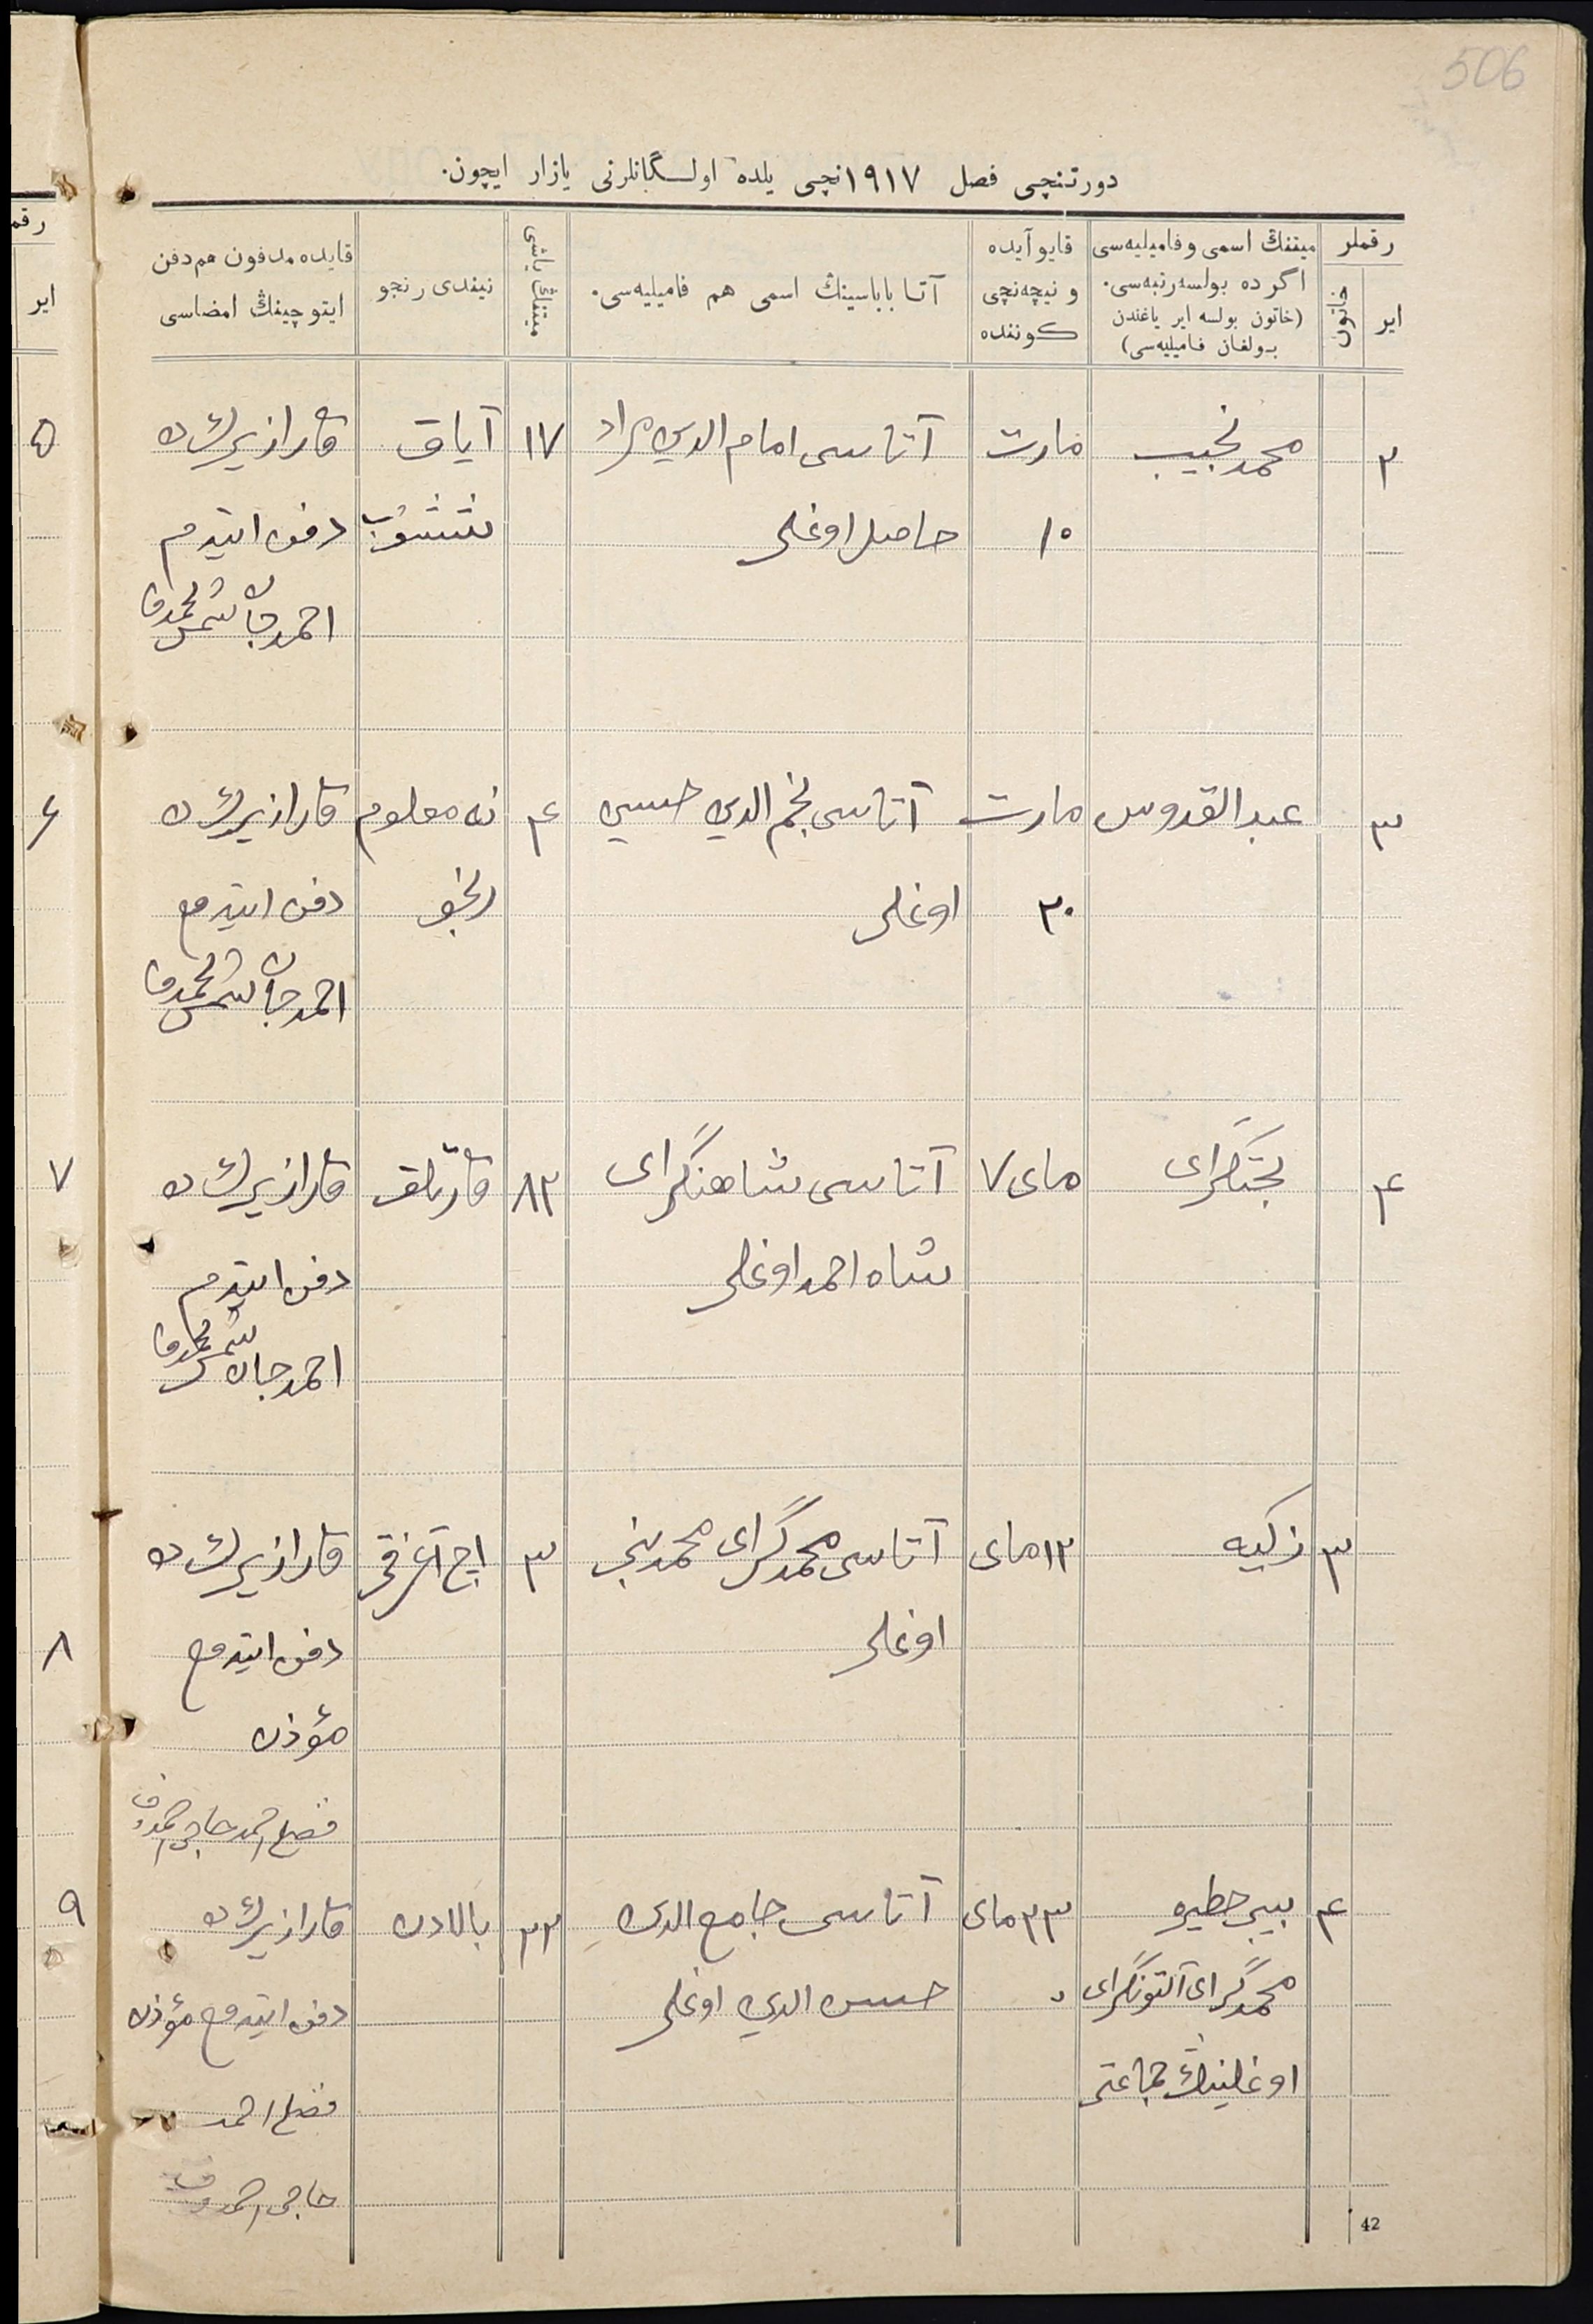 506
دورتنچی فصل ۱۹۱۷نچی یلده اولسگانلرنی یازار ایچون.
رقملر
ایر
خاتون
میتنڭ اسمی و فامیلیه‌سی
اگر ده بولسه رتبه‌سی.
(خاتون بولسه ایر یاغندن
بولغان فامیلیه‌سی)
قایو آیده
و نیچه‌نچی
کوننده
آتا باباسینڭ اسمی هم فامیلیه‌سی.
میتنڭ یاشی
نیندی رنجو
قایده مدفون هم دفن
ایتوچینڭ امضاسی
۲ محمد نجیب مارت آتاسی امام الدین مراد ۱۷ آیاق قارازیرك ده
۱۰ حاصل اوغلی شششوب دفن ایتدم
احمدجان شمس محمدوف
۳ عبدالقدوس مارت آتاسی نجم الدین حسین ۴ نه معلوم قارازیرك ده
۳۰ اوغلی رنجو دفن ایتدم
احمدجان شمس محمدوف
۴ بختگرای مای ۷ آتاسی شاهنگرای ۸۲ قارتلق قارازیرك ده
شاه احمد اوغلی دفن ایتدم
احمدجان شمس محمدوف
۳ زکیه ۱۲ مای آتاسی محمدگرای ۳ قارازیرك ده
اوغلی دفن ایتدم
مؤذن
فضل احمد حاجی احمدوف
۴ ۲۳ مای آتاسی جامع الدین ۲۲ بالادن قارازیرك ده
محمدگرای آلتونگرای حسن الدین اوغلی دفن ایتدم مؤذن
اوغلینڭ جماعتی فضل احمد
حاجی احمدوف
42
رقم
ایر
۵
۶
۷
۸
۹